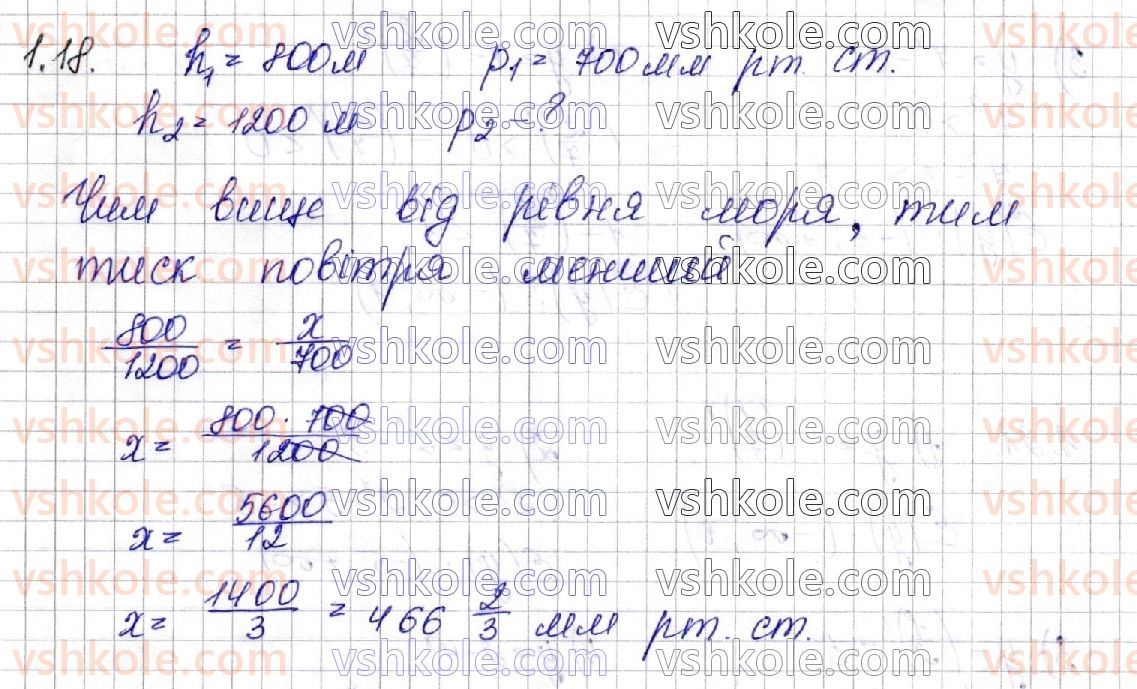 1.18. h₁ = 800 м p₁ = 700 мм рт. ст.
h₂ = 1200 м p₂ - ?
Чим вище від рівня моря, тим
тиск повітря менший
800/1200 = x/700
x = 800 · 700/1200
x = 5600/12
x = 1400/3 = 466 2/3 мм рт. ст.
vshkole.com